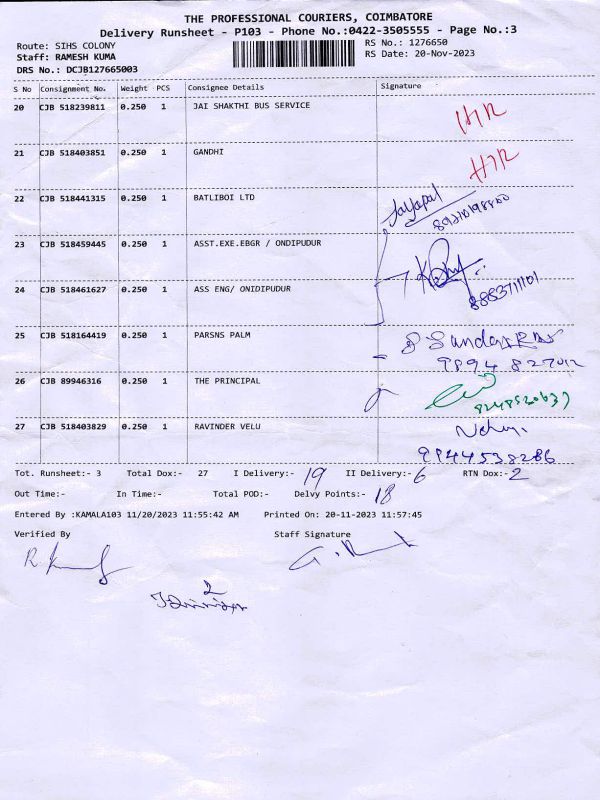 THE PROFESSIONAL COURIERS, COIMBATORE
Delivery Runsheet - P103 - Phone No.:0422-3505555 - Page No.:3
Route: SIHS COLONY RS No.: 1276650
Staff: RAMESH KUMA RS Date: 20-Nov-2023
DRS No.: DCJB127665003
S No Consignment No. Weight PCS Consignee Details Signature
20 CJB 518239811 0.250 1 JAI SHAKTHI BUS SERVICE
21 CJB 518403851 0.250 1 GANDHI
22 CJB 518441315 0.250 1 BATLIBOI LTD Jayapal
23 CJB 518459445 0.250 1 ASST.EXE.EBGR / ONDIPUDUR
24 CJB 518461627 0.250 1 ASS ENG/ ONIDIPUDUR 8883711101
25 CJB 518164419 0.250 1 PARSNS PALM
26 CJB 89946316 0.250 1 THE PRINCIPAL
27 CJB 518403829 0.250 1 RAVINDER VELU
9944538286
Tot. Runsheet:- 3 Total Dox:- 27 I Delivery:- 19 II Delivery:- 6 RTN Dox:- 2
Out Time:- In Time:- Total POD:- Delvy Points:- 18
Entered By :KAMALA103 11/20/2023 11:55:42 AM Printed On: 20-11-2023 11:57:45
Verified By Staff Signature
2